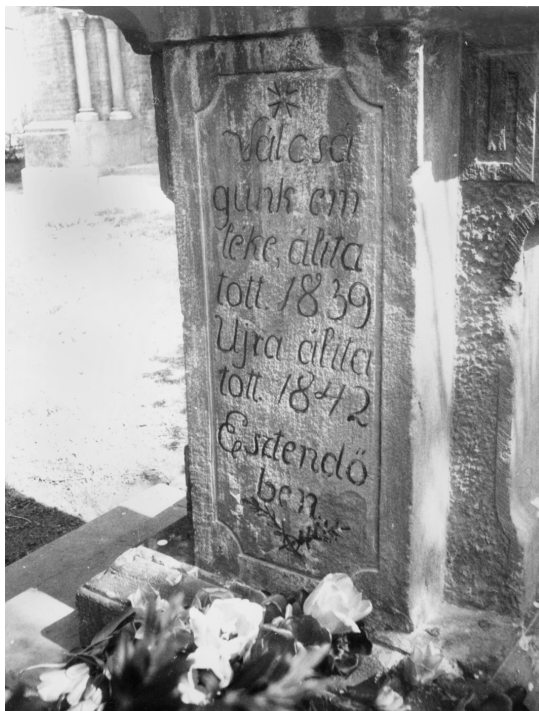 Válcsá
gunk em
léke, álita
tott. 1839
Ujra álita
tott. 1842
Esztendő
ben.